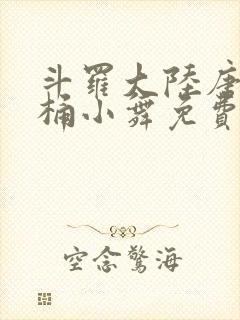 斗羅大陸唐
桶小舞免費
空念驚海